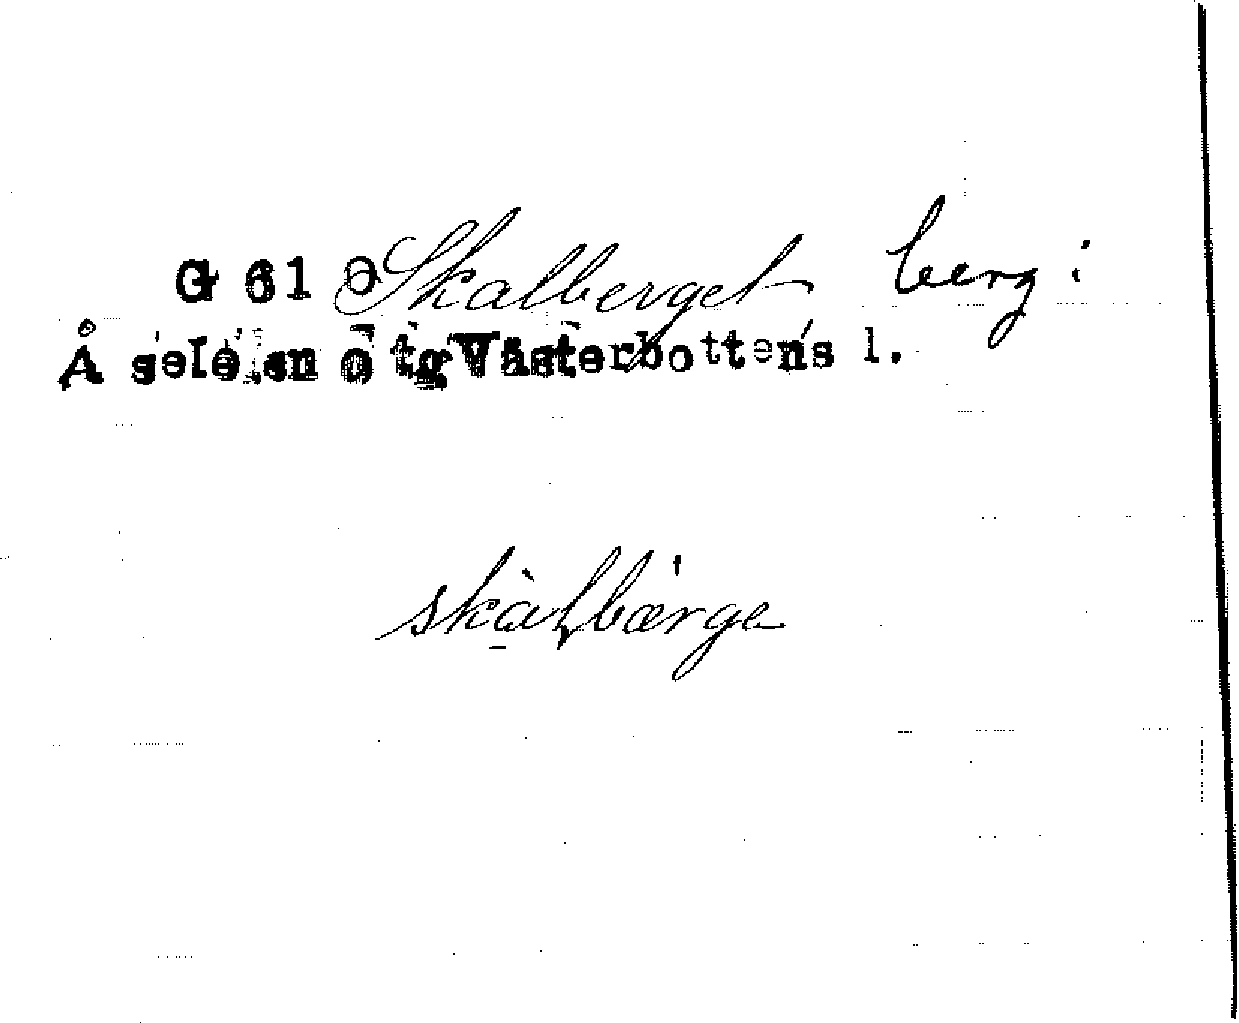 G 61 Skalberget berg i
Åsele sn Västerbottens l.
skalbærge